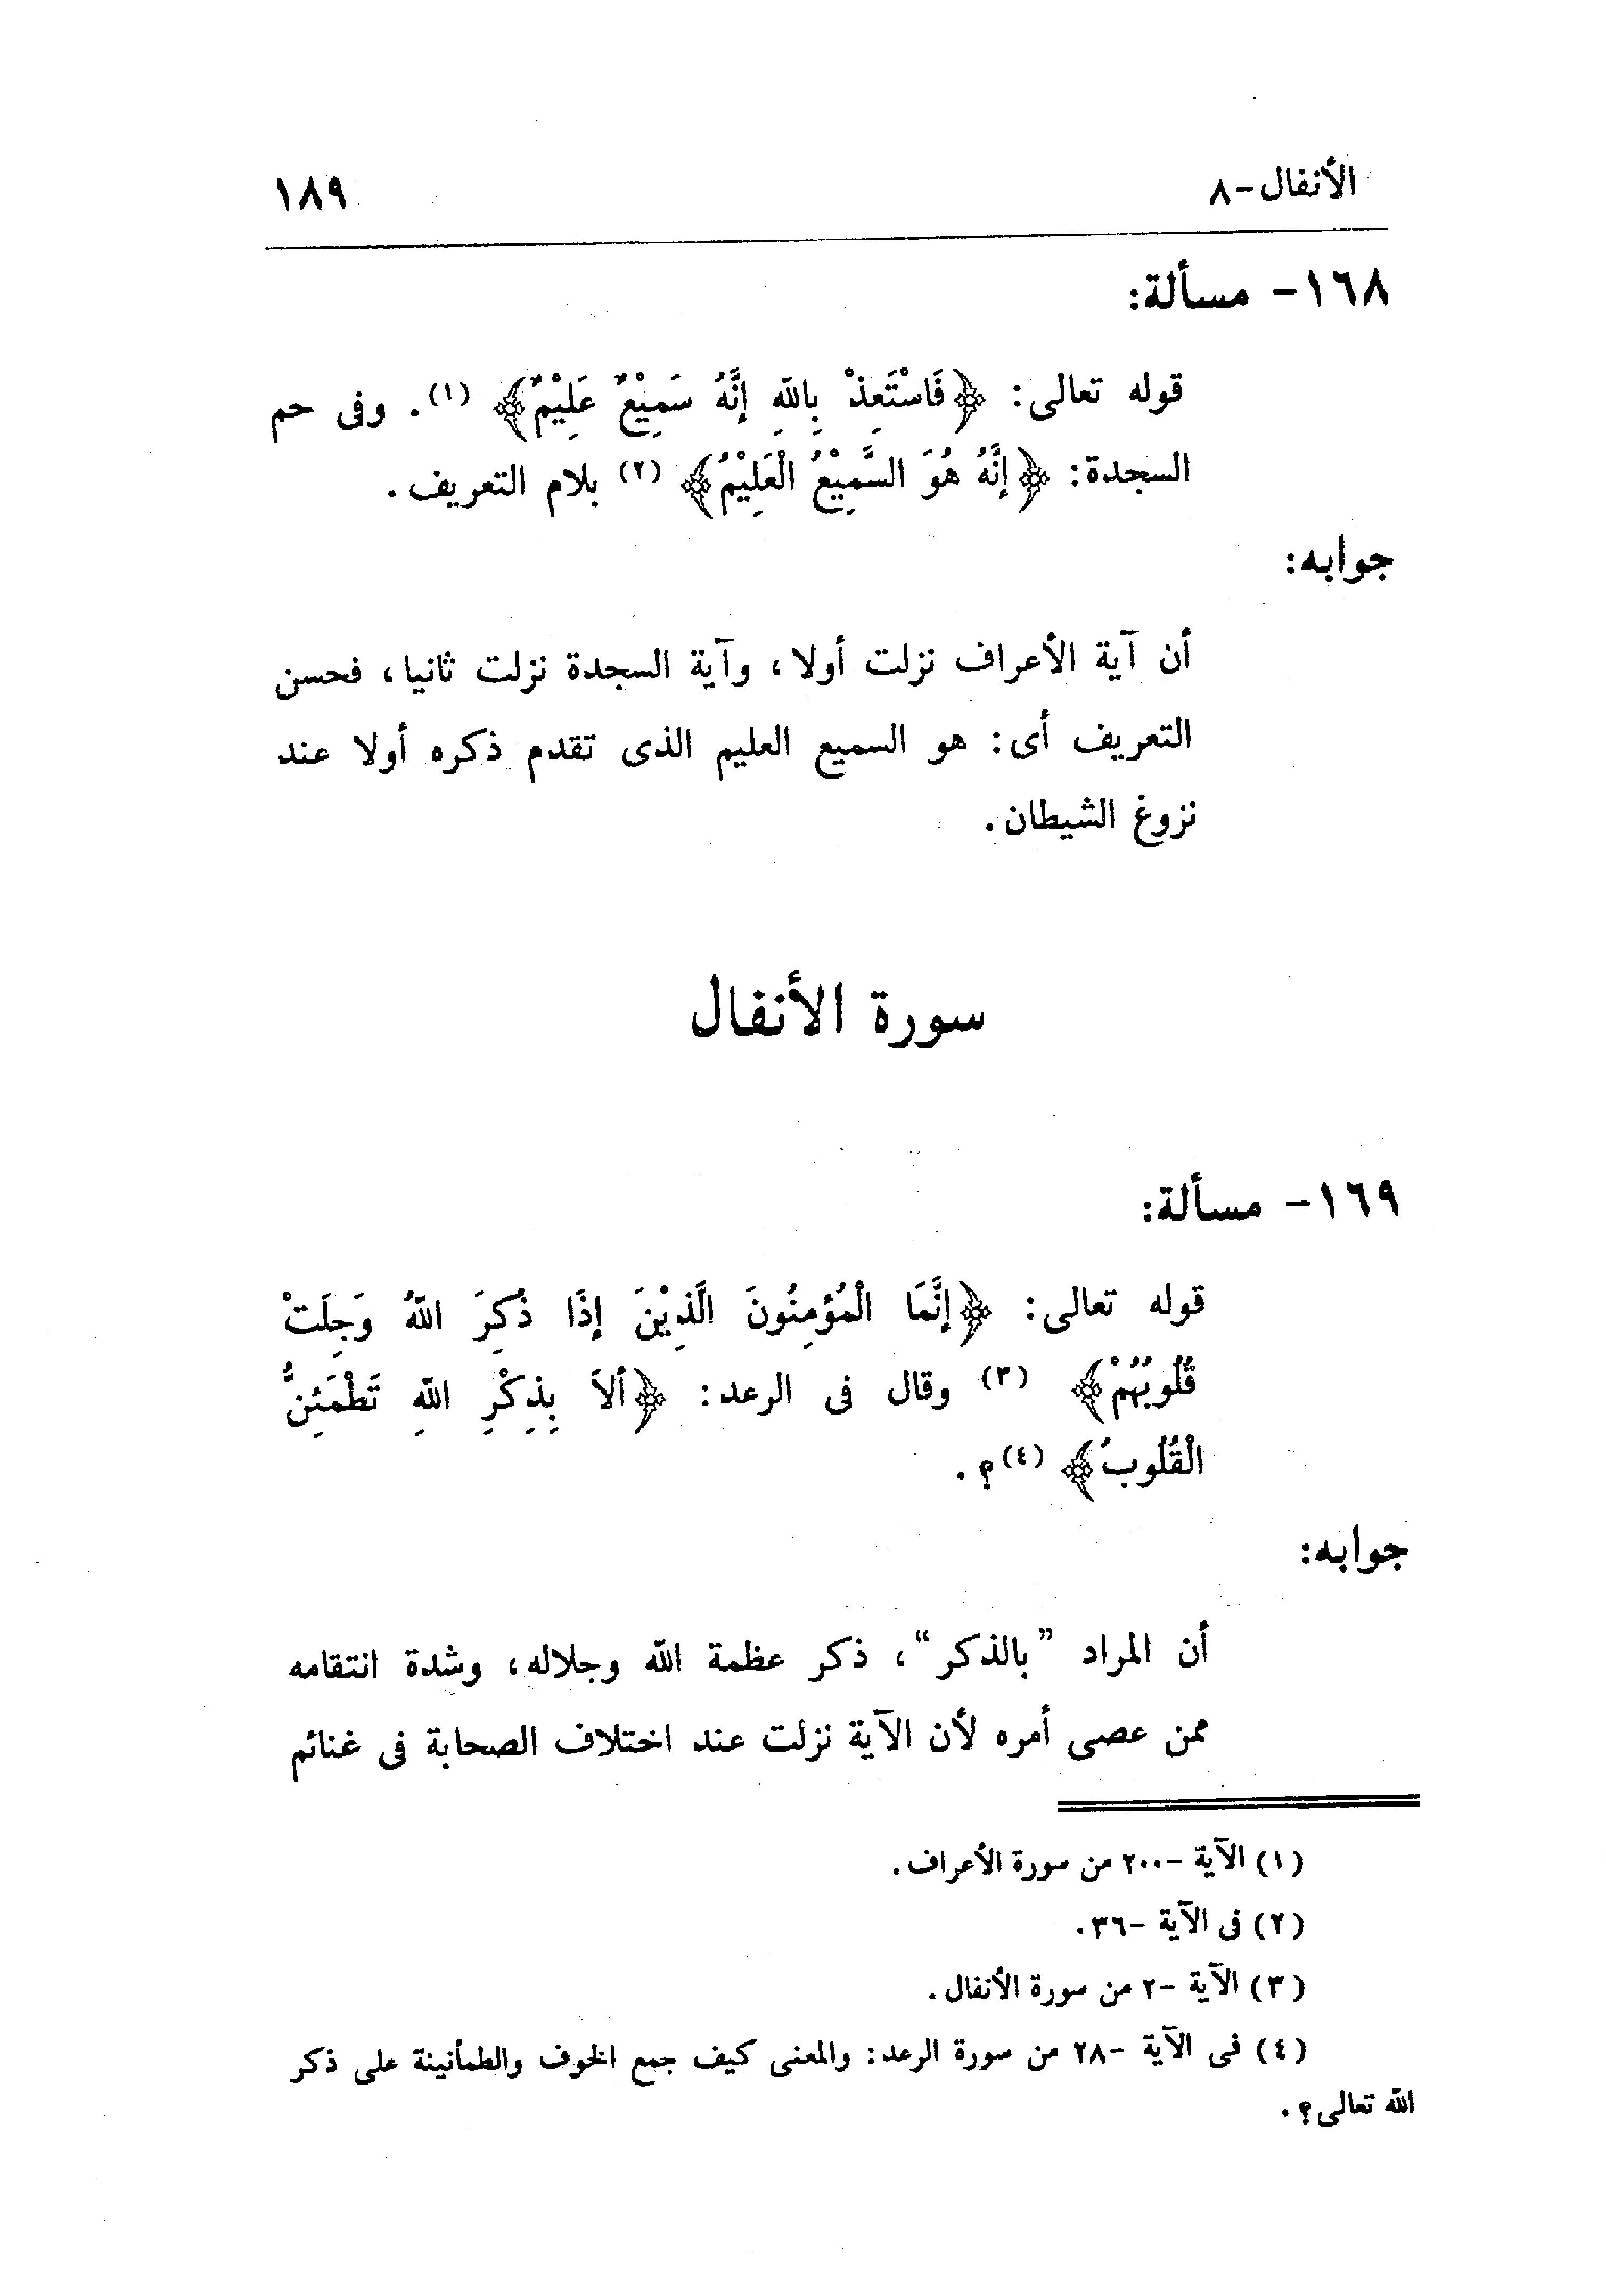 الأنفال -٨ ١٨٩
١٦٨- مسألة:
قوله تعالى: ﴿فَاسْتَعِذْ بِاللهِ إنَّهُ سَمِيْعٌ عَلِيْمٌ﴾ (١). وفى حم
السجدة: ﴿إنَّهُ هُوَ السَّمِيْعُ الْعَلِيْمُ﴾ (٢) بلام التعريف.
جوابه:
أن آية الأعراف نزلت أولا، وآية السجدة نزلت ثانيا، فحسن
التعريف أى: هو السميع العليم الذى تقدم ذكره أولا عند
نزوغ الشيطان.
سورة الأنفال
١٦٩- مسألة:
قوله تعالى: ﴿إنَّمَا الْمُؤمِنُونَ الَّذِيْنَ إذَا ذُكِرَ اللهُ وَجِلَتْ
قُلُوبُهُمْ﴾ (٣) وقال فى الرعد: ﴿ألاَ بِذِكْرِ اللهِ تَطْمَئِنُّ
الْقُلُوبُ﴾ (٤)؟.
جوابه:
أن المراد "بالذكر"، ذكر عظمة الله وجلاله، وشدة انتقامه
ممن عصى أمره لأن الآية نزلت عند اختلاف الصحابة فى غنائم
(١) الآية -٢٠٠ من سورة الأعراف.
(٢) فى الآية -٣٦.
(٣) الآية -٢ من سورة الأنفال.
(٤) فى الآية -٢٨ من سورة الرعد: والمعنى كيف جمع الخوف والطمأنينة على ذكر
الله تعالى؟.